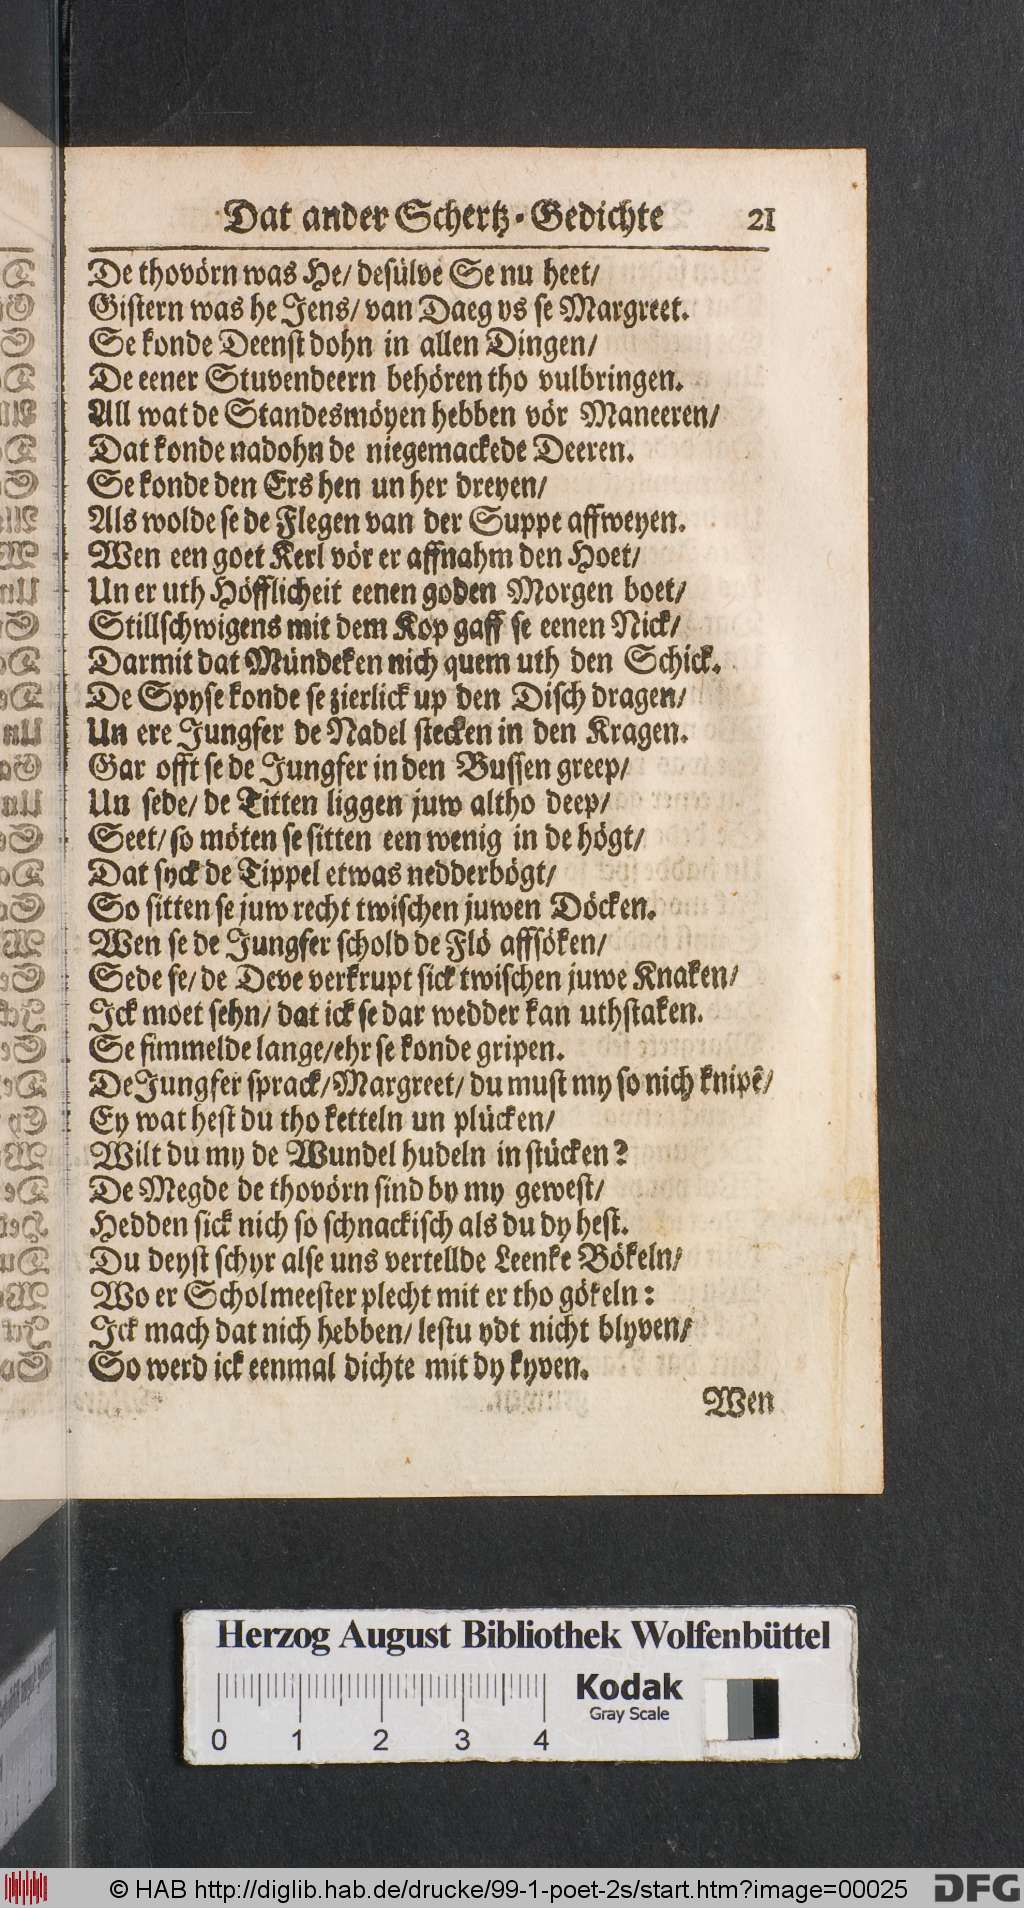 Dat ander Schertz-Gedichte 21
De thovörn was He/ desülve Se nu heet/
Gistern was he Jens/ van Daeg ys se Margreet.
Se konde Deenst dohn in allen Dingen/
De eener Stuvendeern behören tho vulbringen.
All wat de Standesmöyen hebben vör Maneeren/
Dat konde nadohn de niegemackede Deeren.
Se konde den Ers hen un her dreyen/
Als wolde se de Flegen van der Suppe affweyen.
Wen een goet Kerl vör er affnahm den Hoet/
Un er uth Höfflicheit eenen goden Morgen boet/
Stillschwigens mit dem Kop gaff se eenen Nick/
Darmit dat Mündeken nich quem uth den Schick.
De Spyse konde se zierlick up den Disch dragen/
Un ere Jungfer de Nadel stecken in den Kragen.
Gar offt se de Jungfer in den Bussen greep/
Un sede/ de Titten liggen juw altho deep/
Seet/ so möten se sitten een wenig in de högt/
Dat syck de Tippel etwas nedderbögt/
So sitten se juw recht twischen juwen Döcken.
Wen se de Jungfer schold de Flö affsöken/
Sede se/ de Deve verkrupt sick twischen juwe Knaken/
Ick moet sehn/ dat ick se dar wedder kan uthstaken.
Se fimmelde lange/ ehr se konde gripen.
De Jungfer sprack/ Margreet/ du must my so nich knipē/
Ey wat hest du tho ketteln un plücken/
Wilt du my de Wundel hudeln in stücken?
De Megde de thovörn sind by my gewest/
Hedden sick nich so schnackisch als du dy hest.
Du deyst schyr alse uns vertellde Leenke Bökeln/
Wo er Scholmeester plecht mit er tho gökeln:
Ick mach dat nich hebben/ lestu ydt nicht blyven/
So werd ick eenmal dichte mit dy kyven.
Wen
Herzog August Bibliothek Wolfenbüttel
0 1 2 3 4
Kodak
Gray Scale
© HAB http://diglib.hab.de/drucke/99-1-poet-2s/start.htm?image=00025
DFG